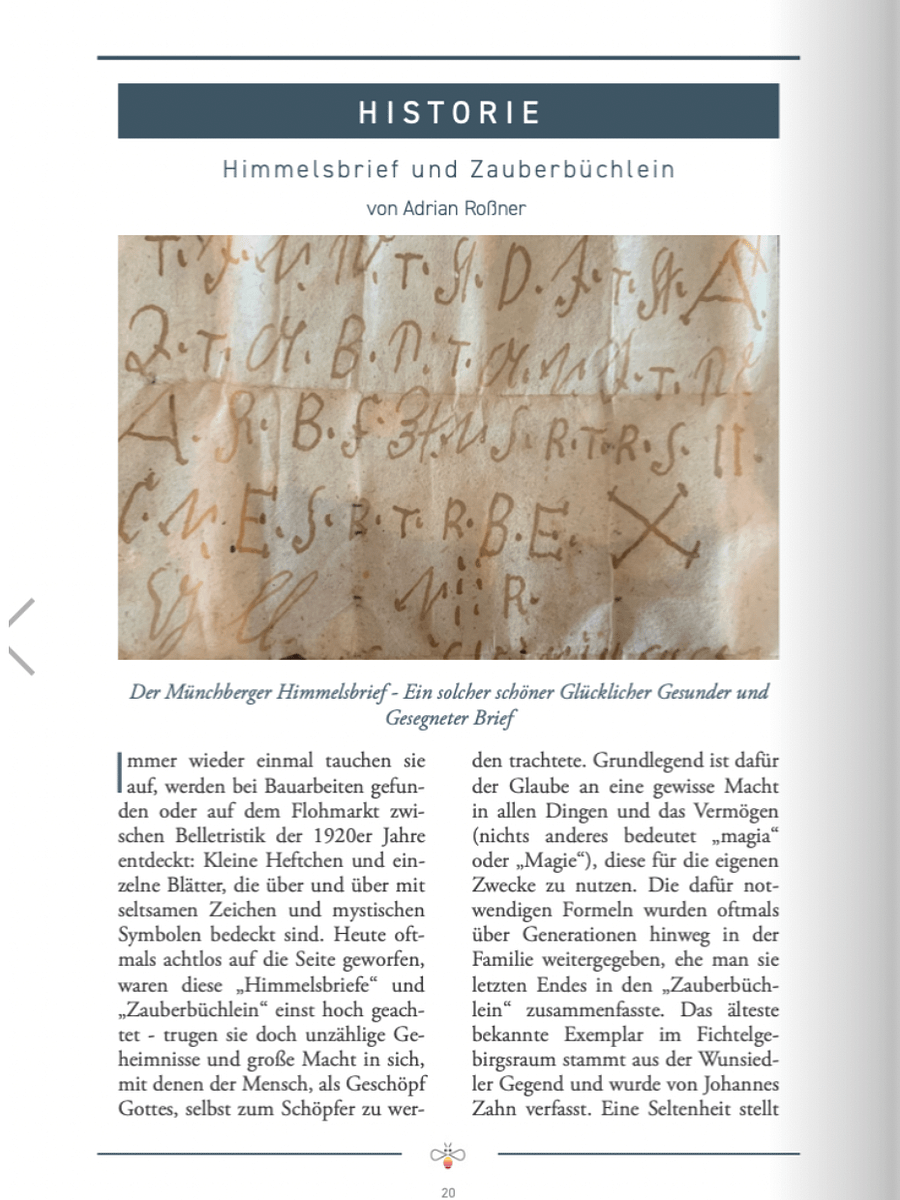 HISTORIE
Himmelsbrief und Zauberbüchlein
von Adrian Roßner
D.
B.
A. R. B.
R.T.R.S. II.
E.S.B.T.R.B.E. X
R.
Der Münchberger Himmelsbrief - Ein solcher schöner Glücklicher Gesunder und
Gesegneter Brief
Immer wieder einmal tauchen sie
auf, werden bei Bauarbeiten gefun-
den oder auf dem Flohmarkt zwi-
schen Belletristik der 1920er Jahre
entdeckt: Kleine Heftchen und ein-
zelne Blätter, die über und über mit
seltsamen Zeichen und mystischen
Symbolen bedeckt sind. Heute oft-
mals achtlos auf die Seite geworfen,
waren diese „Himmelsbriefe“ und
„Zauberbüchlein“ einst hoch geach-
tet - trugen sie doch unzählige Ge-
heimnisse und große Macht in sich,
mit denen der Mensch, als Geschöpf
Gottes, selbst zum Schöpfer zu wer-
den trachtete. Grundlegend ist dafür
der Glaube an eine gewisse Macht
in allen Dingen und das Vermögen
(nichts anderes bedeutet „magia“
oder „Magie“), diese für die eigenen
Zwecke zu nutzen. Die dafür not-
wendigen Formeln wurden oftmals
über Generationen hinweg in der
Familie weitergegeben, ehe man sie
letzten Endes in den „Zauberbüch-
lein“ zusammenfasste. Das älteste
bekannte Exemplar im Fichtelge-
birgsraum stammt aus der Wunsied-
ler Gegend und wurde von Johannes
Zahn verfasst. Eine Seltenheit stellt
20